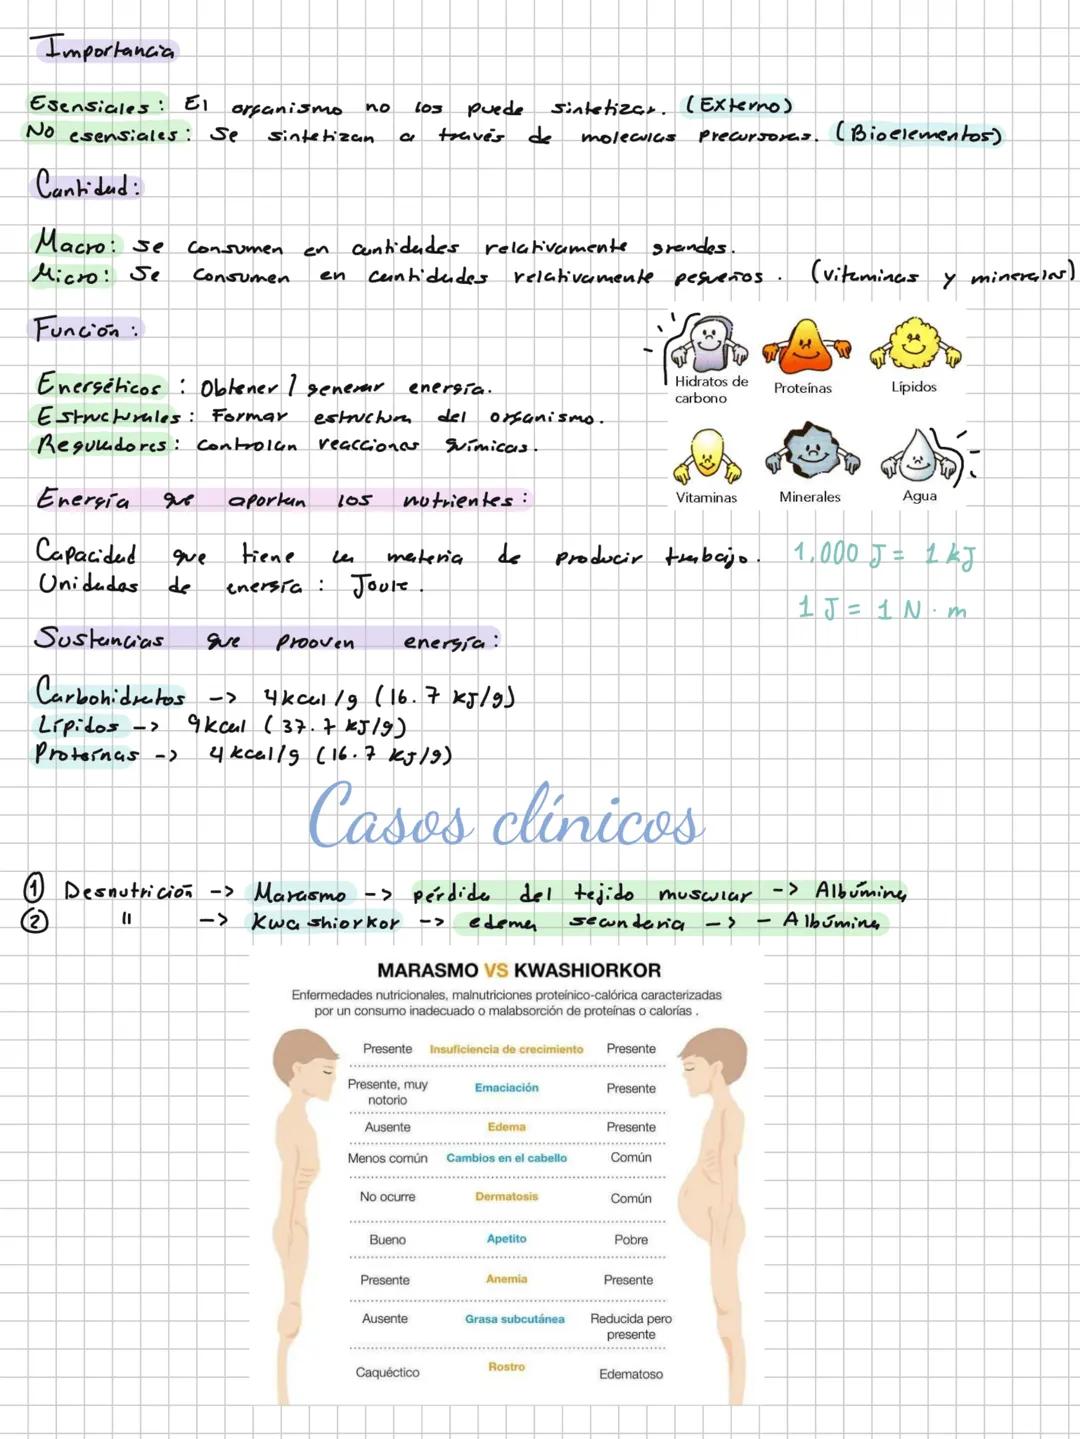 Importancia
Esensiales: El organismo no los puede sintetizar. (Externo)
No esensiales: Se sintetizan a través de moleculas precursoras. (Bioelementos)
Cantidad:
Macro: se consumen en cantidades relativamente grandes.
Micro: Se consumen en cantidades relativamente pequeños. (vitaminas y minerales)
Función:
Energéticos: Obtener / generar energía.
Estructurales: Formar estructura del organismo.
Reguladores: Controlan reacciones químicas.
Hidratos de carbono
Proteínas
Lípidos
Vitaminas
Minerales
Agua
Energía que aportan los nutrientes:
Capacidad que tiene la materia de producir trabajo. 1,000 J = 1 kJ
Unidades de energía: Joule. 1 J = 1 N · m
Sustancias que prooven energía:
Carbohidratos -> 4kcal/g (16.7 kJ/g)
Lípidos -> 9kcal (37.7 kJ/g)
Proteínas -> 4kcal/g (16.7 kJ/g)
Casos clínicos
① Desnutrición -> Marasmo -> pérdida del tejido muscular -> Albúmina
② " -> Kwashiorkor -> edema secundaria -> - Albúmina
MARASMO VS KWASHIORKOR
Enfermedades nutricionales, malnutriciones proteínico-calórica caracterizadas
por un consumo inadecuado o malabsorción de proteínas o calorías .
Presente Insuficiencia de crecimiento Presente
Presente, muy notorio Emaciación Presente
Ausente Edema Presente
Menos común Cambios en el cabello Común
No ocurre Dermatosis Común
Bueno Apetito Pobre
Presente Anemia Presente
Ausente Grasa subcutánea Reducida pero presente
Caquéctico Rostro Edematoso